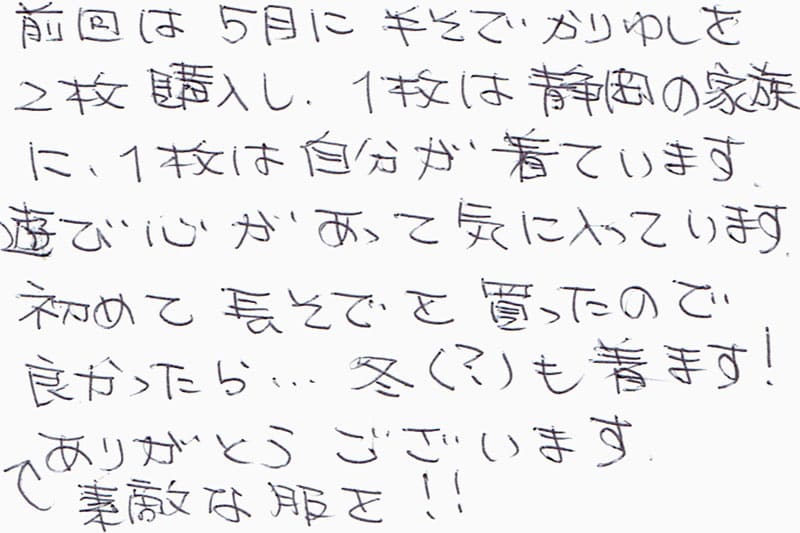 前回は 5月に 半そで かりゆしを
2枚 購入し、1枚は 静岡の家族
に、1枚は 自分が 着ています.
遊び心が あって 気に入っています.
初めて 長そでを 買ったので
良かったら… 冬(?)も 着ます!
ありがとう ございます.
素敵な 服を!!